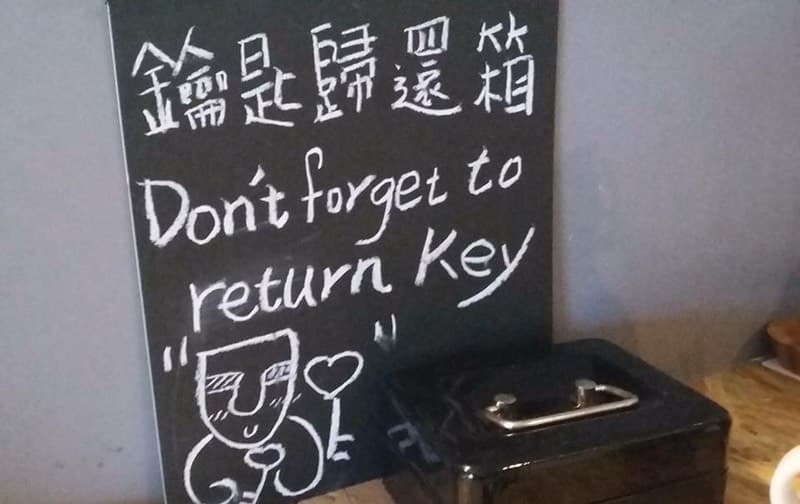 鑰匙歸還箱
Don't forget to
return Key